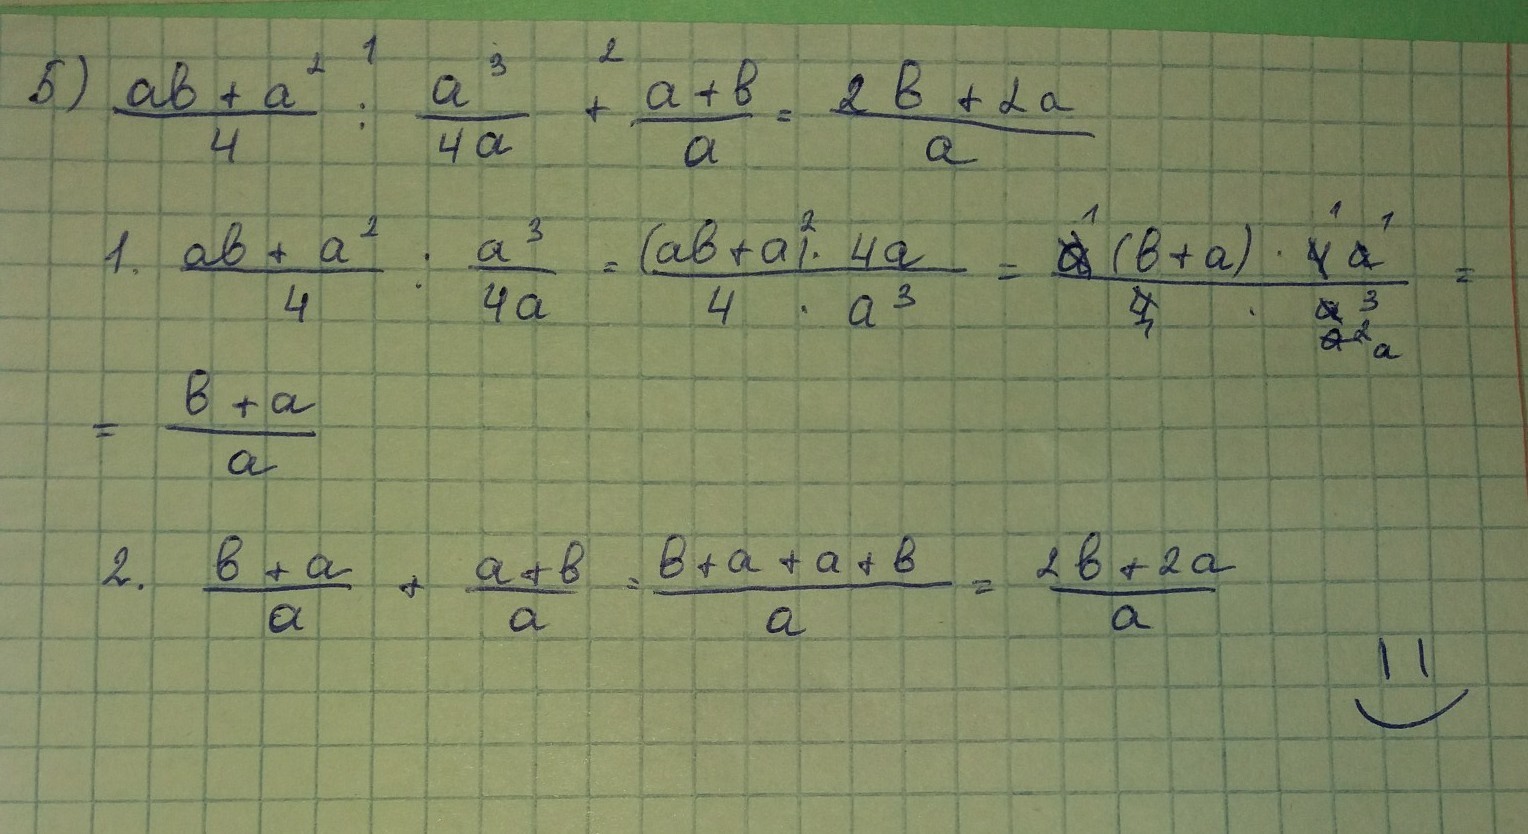 5) (ab + a²)/4 : a³/4a + (a + b)/a = (2b + 2a)/a
1. (ab + a²)/4 : a³/4a = ((ab + a²) · 4a)/(4 · a³) = (a(b + a) · 4a)/(4 · a³) =
= (b + a)/a
2. (b + a)/a + (a + b)/a = (b + a + a + b)/a = (2b + 2a)/a